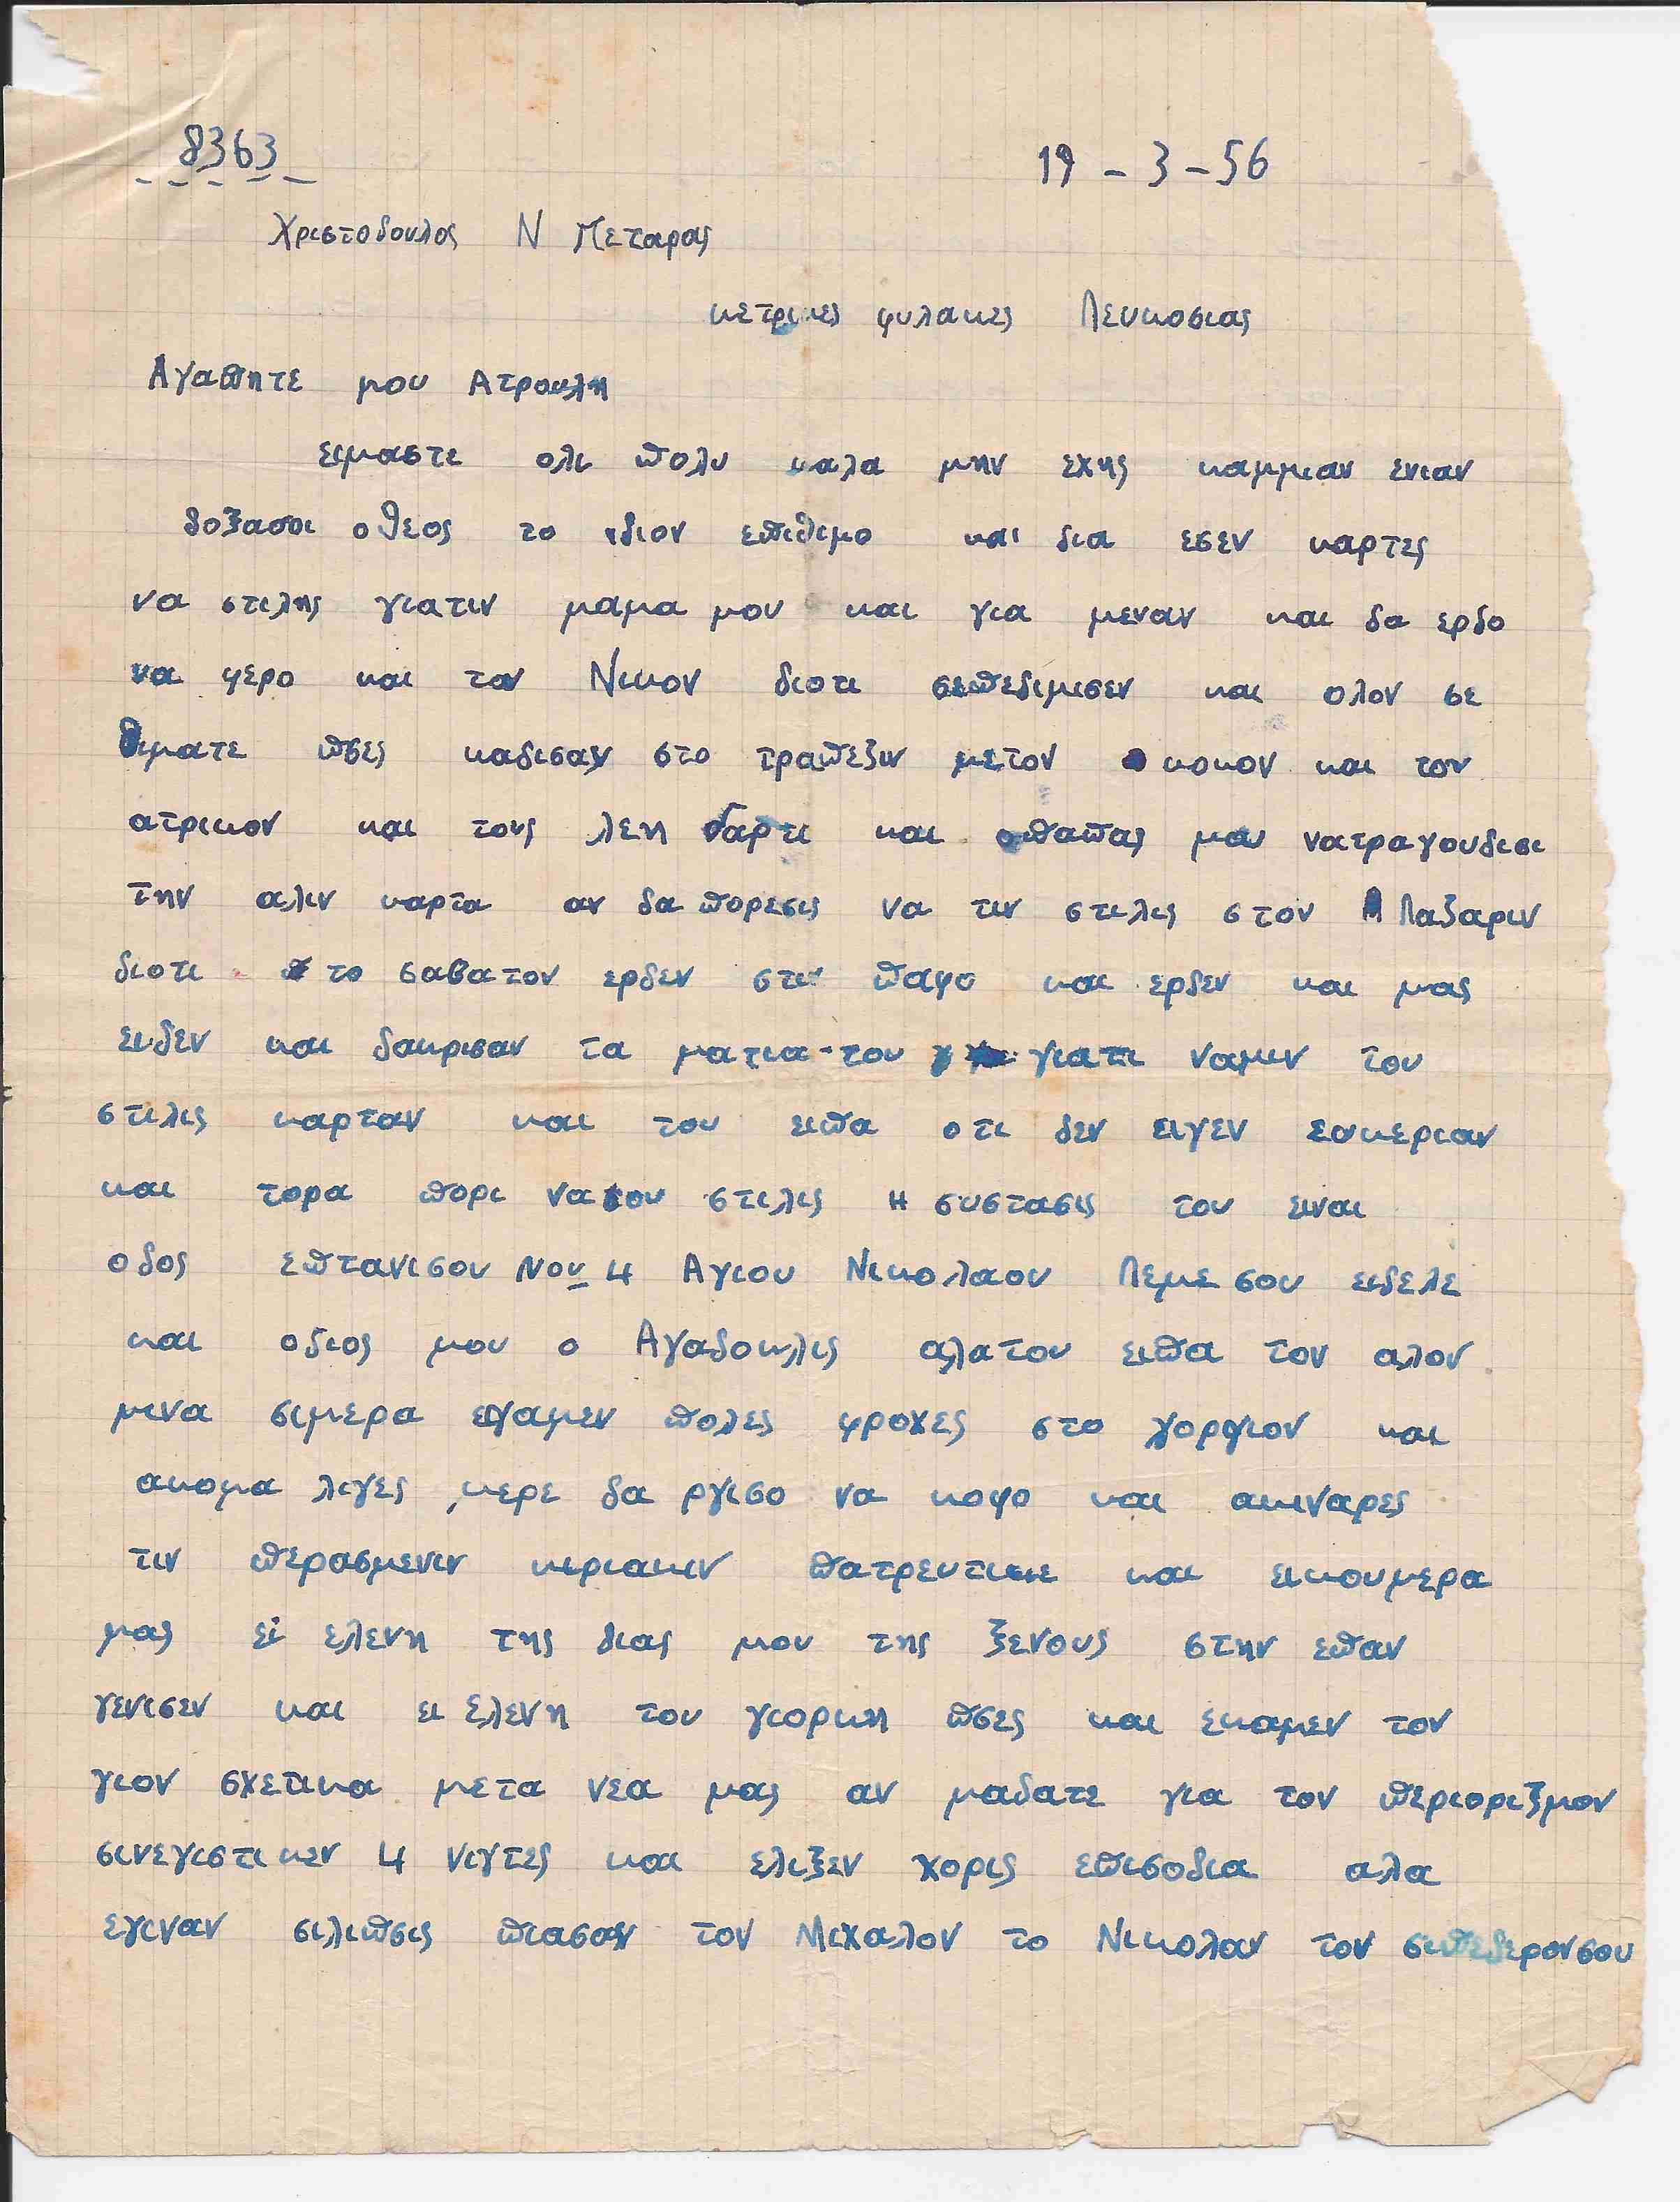 8363
19 - 3 - 56
Χριστοδουλος Ν Πεταρας
κετρικες φυλακες Λευκοσιας
Αγαπητε μου Ατρουλη
ειμαστε ολι πολυ καλα μην εχης καμμιαν ενιαν
δοξασοι ο θεος το ιδιον επιθιμο και δια εσεν καρτες
να στιλης γιατιν μαμα μου και για μεναν και δα ερδο
να φερο και τον Νικον διοτι σεπεδιμισεν και ολον σε
θιματε πσες καδισαν στο τραπεξιν μετον κοκον και τον
ατρικον και τους λεη δαρτι και οπαπας μου νατραγουδισι
την αλιν καρτα αν δα πορεσις να τιν στιλις στον Λαζαριν
διοτι το σαβατον ερδεν στιν παφο και ερδεν και μας
ειδεν και δακρισαν τα ματια του γιατι ναμιν του
στιλις καρταν και του ειπα οτι δεν ειγεν εσκεριαν
και τορα πορι νατου στιλις η συστασις του ειναι
οδος επτανισου Νου 4 Αγιου Νικολαου Λεμεσου ειδελε
και οδιος μου ο Αγαδοκλις αλατου ειπα τον αλον
μινα σιμερα εγαμεν πολες φροχες στο γοργιον και
ακομα λιγες μερε δα ργισο να κοψο και ακιναρες
τιν περασμενιν κιριακιν πατρευτικε και εικουμερα
μας ει ελενη της διας μου της ξενους στην επαν
γενισεν και ει Ελενη του γιορκη πσες και εκαμεν τον
γιον σχετικα μετα νεα μας αν μαδατε για τον περιοριξμον
σινεγιστικεν 4 νιγτες και ελιξεν χορις επισοδια αλα
εγιναν σιλιπσις πιασαν τον Μιχαλον το Νικολαν τον σιπεδερονσου